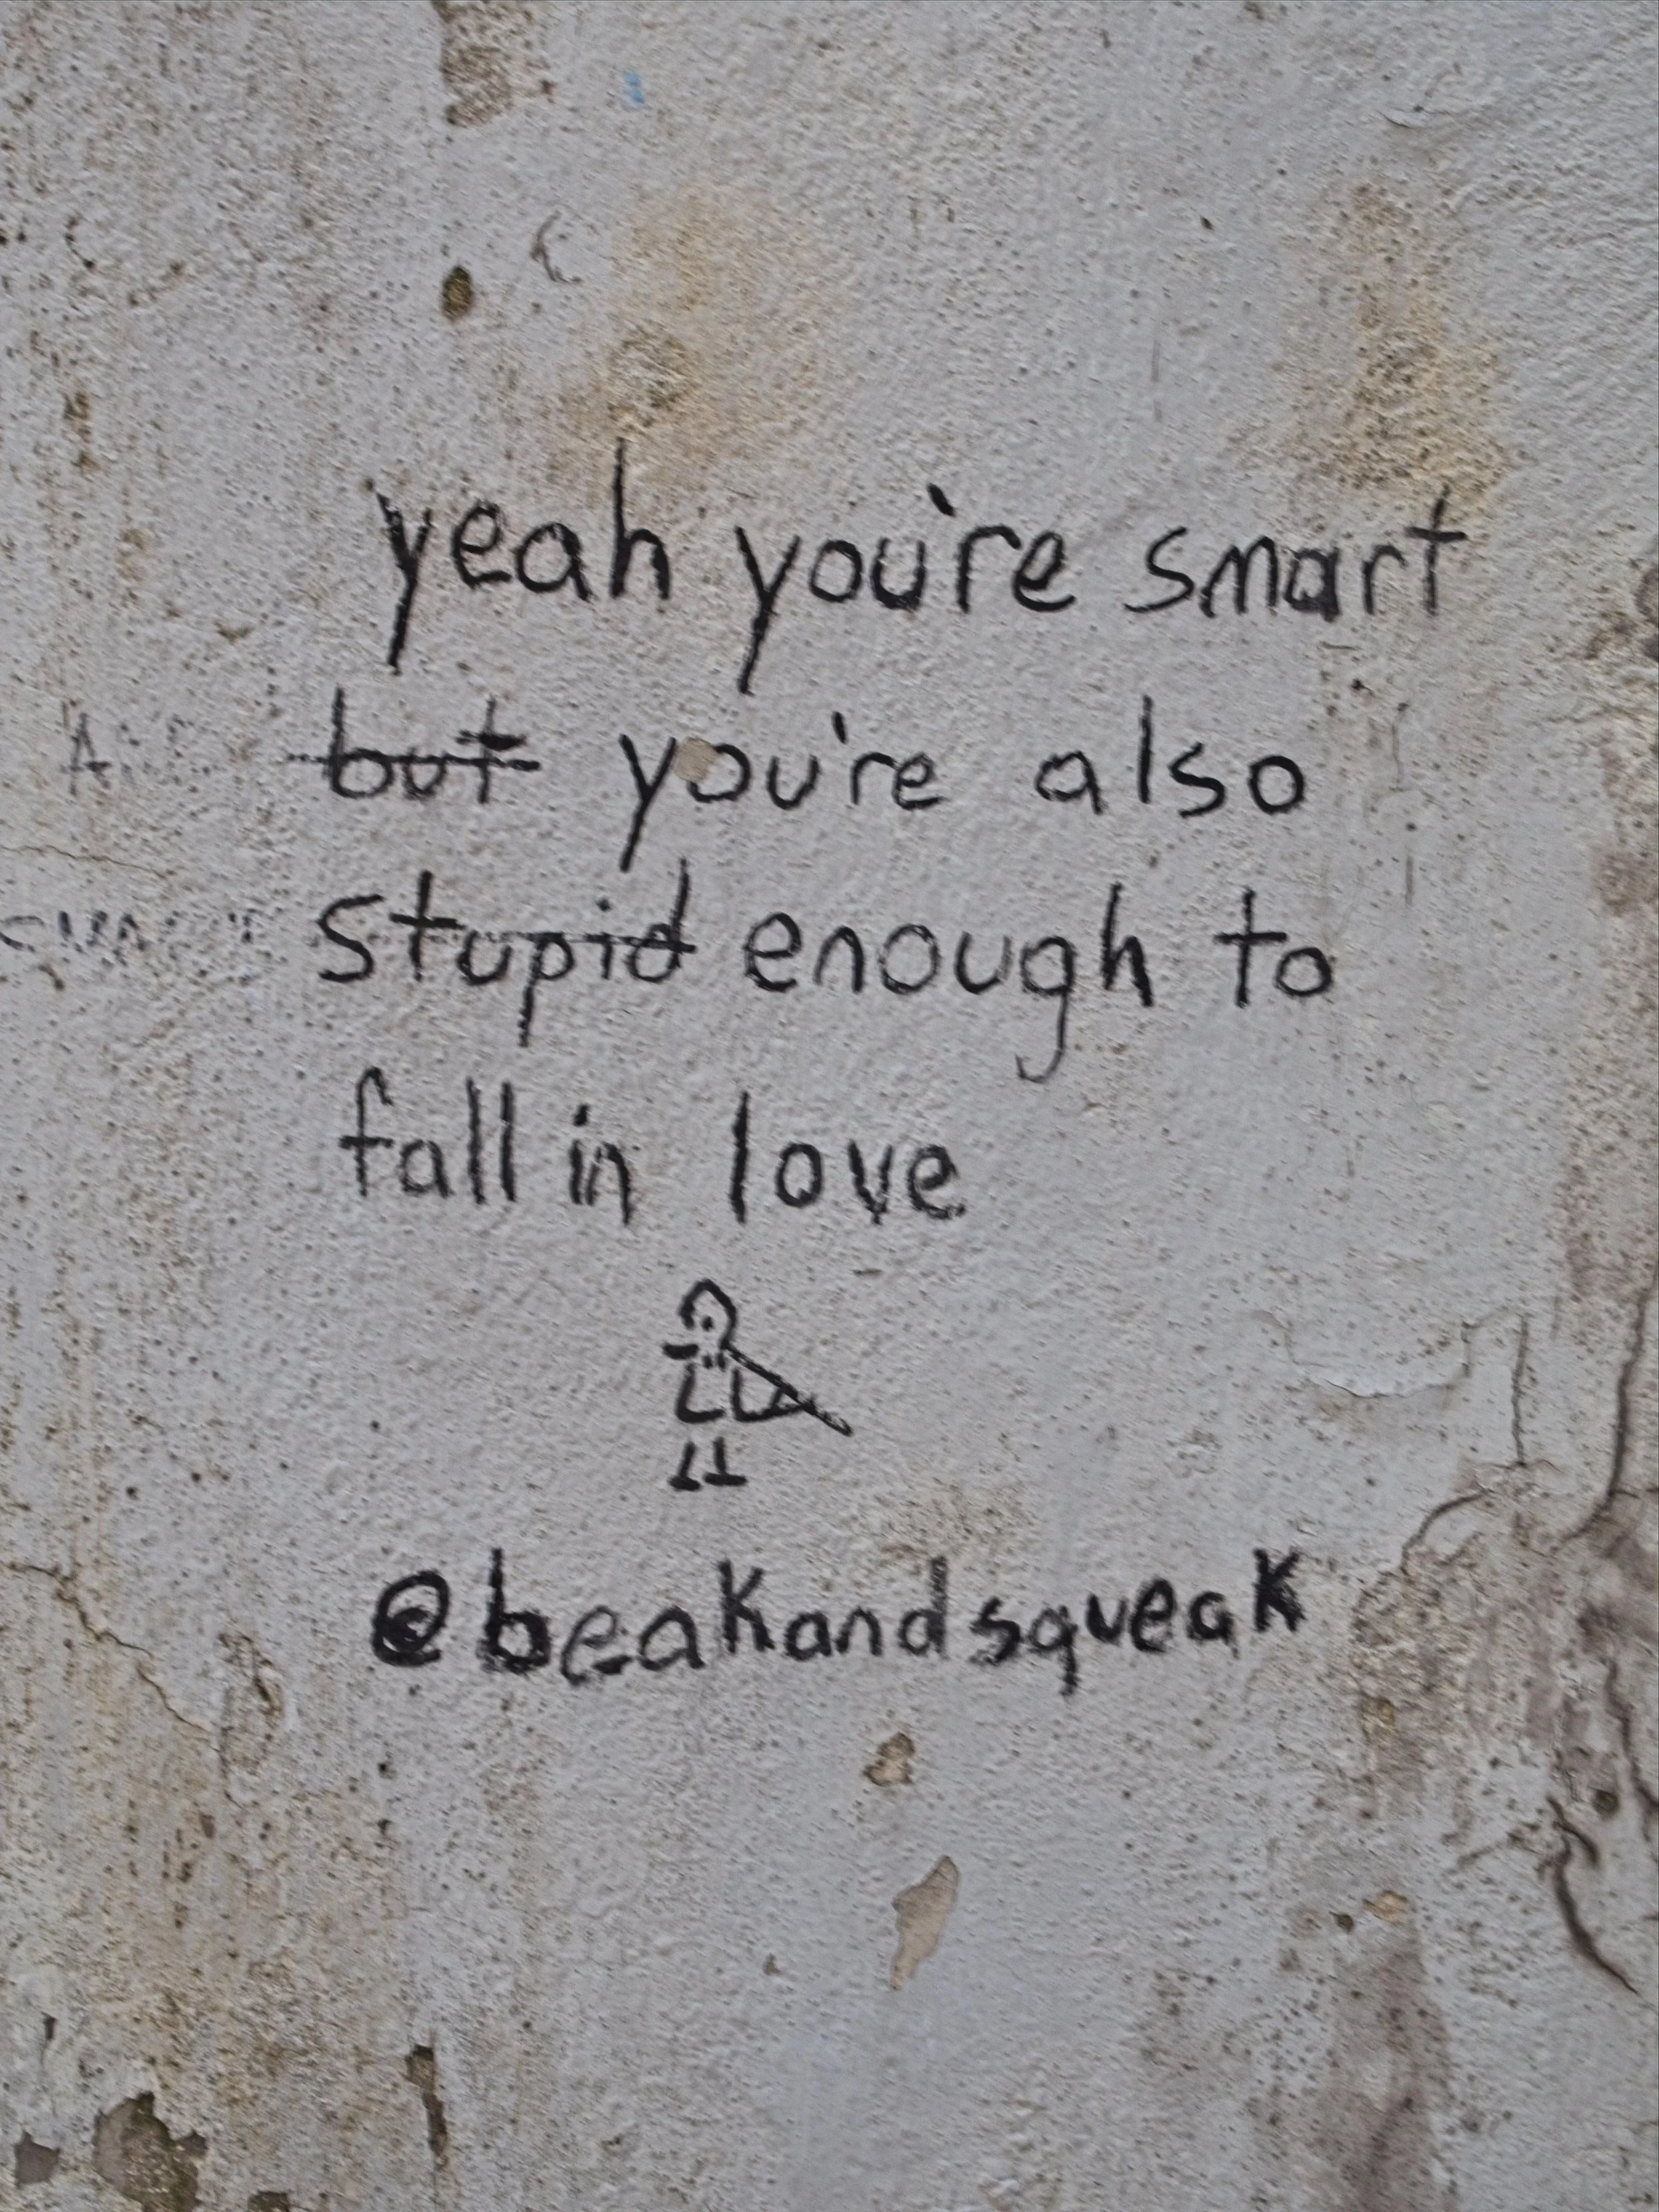 yeah you're smart
but you're also
stupid enough to
fall in love
@beakandsqueak